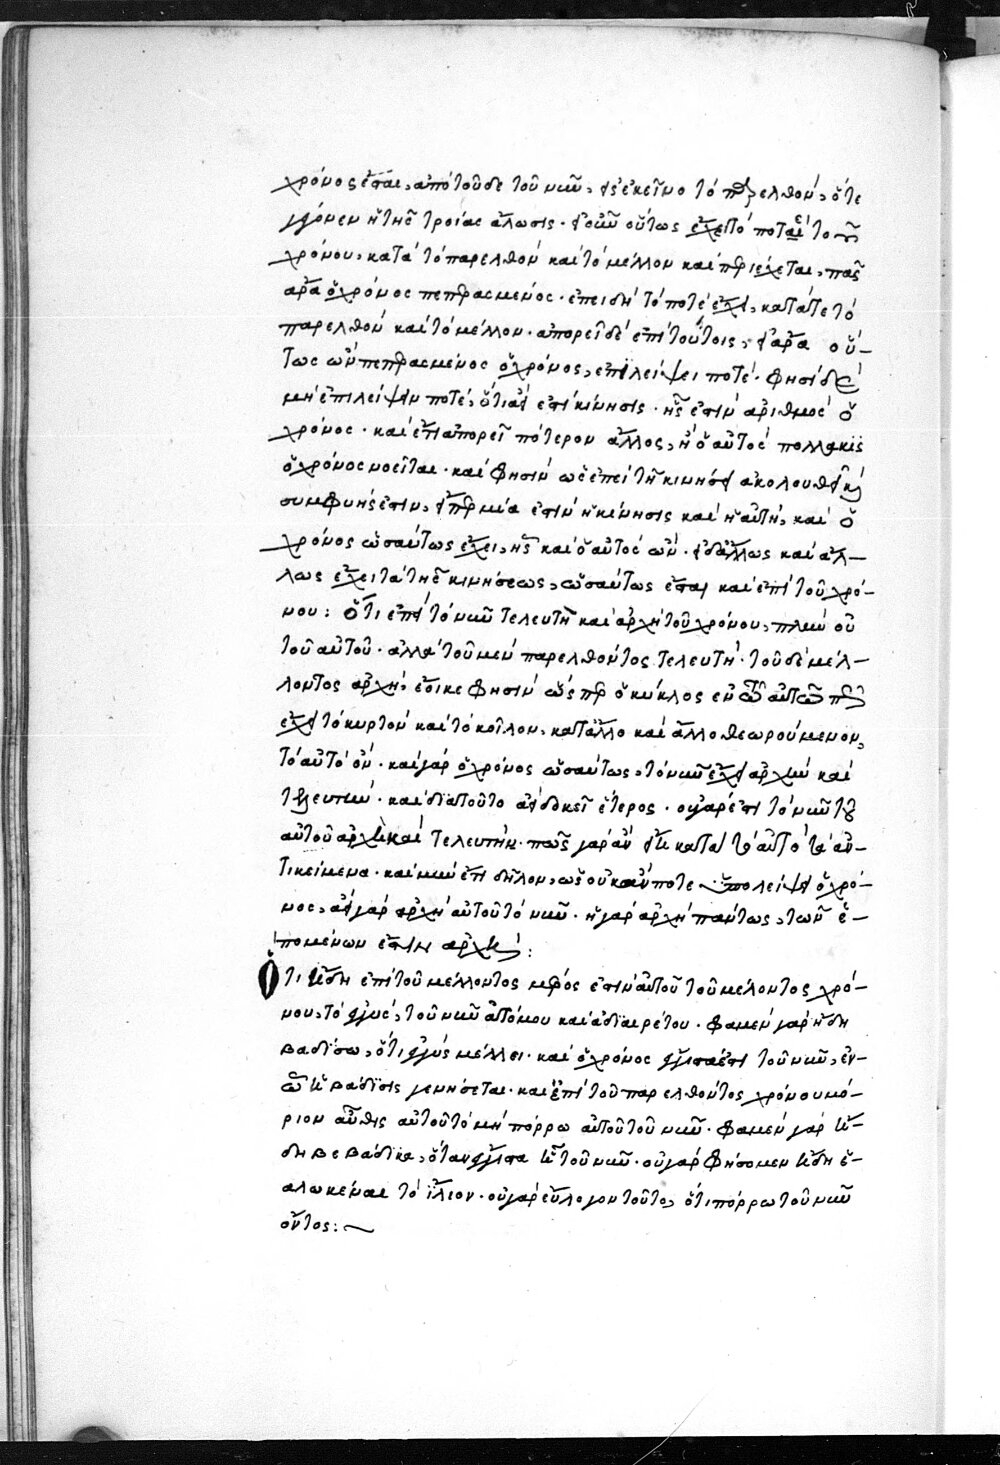 χρόνος ἔσται, ἀπὸ τοῦδε τοῦ νῦν, εἰς ἐκεῖνο τὸ παρελθὸν, ὅτε
γέγονεν ἡ τῆς τροίας ἅλωσις. εἰ οὖν οὕτως ἔχει τὸ ποτὲ ἐπὶ τοῦ
χρόνου, κατὰ τὸ παρελθὸν καὶ τὸ μέλλον καὶ περιέχεται, πᾶς
ἄρα ὁ χρόνος πεπερασμένος. ἐπειδὴ τὸ ποτὲ ἔχει, κατά τε τὸ
παρελθὸν καὶ τὸ μέλλον. ἀπορεῖ δὲ ἐπὶ τούτοις, εἰ ἄρα οὕ-
τως ὢν πεπερασμένος ὁ χρόνος, ἐπιλείψει ποτέ. φησὶ δὲ
μὴ ἐπιλείψειν ποτέ, ὅτι ἀεὶ ἐστὶ κίνησις. ἧς ἐστὶν ἀριθμὸς ὁ
χρόνος. καὶ ἔτι ἀπορεῖ πότερον ἄλλος, ἢ ὁ αὐτὸς πολλακις
ὁ χρόνος νοεῖται. καὶ φησὶν ὡς ἐπεὶ τῆ κινήσει ἀκολουθεῖ καὶ
συμφυής ἐστιν, εἴπερ μία ἐστὶν ἡ κίνησις καὶ ἡ αὐτὴ, καὶ ὁ
χρόνος ὡσαύτως ἔχει, εἷς καὶ ὁ αὐτὸς ὤν. εἰ δ' ἄλλως καὶ ἄλ-
λως ἔχει τὰ τῆς κινήσεως, ὡσαύτως ἔσται καὶ ἐπὶ τοῦ χρό-
νου: ὅτι ἐπεὶ τὸ νῦν τελευτὴ καὶ ἀρχὴ τοῦ χρόνου, πλὴν οὐ
τοῦ αὐτοῦ. ἀλλὰ τοῦ μὲν παρελθόντος τελευτή. τοῦ δὲ μέλ-
λοντος ἀρχή, ἔοικε φησὶν ὥσπερ ὁ κύκλος ἐν τῶ αὐτῶ πως
ἔχει τὸ κυρτὸν καὶ τὸ κοῖλον, κατ' ἄλλο καὶ ἄλλο θεωρούμενον,
τὸ αὐτὸ ὄν. καὶ γὰρ ὁ χρόνος ὡσαύτως, τὸ νῦν ἔχει ἀρχὴν καὶ
τελευτήν. καὶ διὰ τοῦτο ἀεὶ δοκεῖ ἕτερος. οὐ γάρ ἐστι τὸ νῦν τοῦ
αὐτοῦ ἀρχὴ καὶ τελευτήν. πῶς γὰρ ἂν εἴη κατὰ τὸ αὐτὸ τὰ ἀν-
τικείμενα. καὶ νῦν ἔτι δῆλον, ὡς οὐκ ἄν ποτε ὑπολείψει ὁ χρό-
νος, ἀεὶ γὰρ ἀρχὴ αὐτοῦ τὸ νῦν. ἡ γὰρ ἀρχὴ πάντως, τῶν ἑ-
πομένων ἐστὶν ἀρχή:
Ὅτι ἤδη ἐπὶ τοῦ μέλλοντος μέρος ἐστὶν αὐτοῦ τοῦ μέλοντος χρό-
νου, τὸ ἐγγὺς, τοῦ νῦν ἀτόμου καὶ ἀδιαιρέτου. φαμὲν γὰρ ἤδη
βαδίσω, ὅτι ἐγγὺς μέλλει. καὶ ὁ χρόνος ἔγγιστά ἐστι τοῦ νῦν, ἐν
ὧ ἡ βάδισις γενήσεται. καὶ ἐπὶ τοῦ παρελθόντος χρόνου μό-
ριον αὖθις αὐτοῦ τὸ μὴ πόρρω αὐτοῦ τοῦ νῦν. φαμὲν γὰρ ἤ-
δη βεβάδικα, ὅταν ἔγγιστα ἦ τοῦ νῦν. οὐ γὰρ φήσομεν ἤδη ἑ-
αλωκέναι τὸ ἴλιον. οὐ γὰρ εὔλογον τοῦτο, ὅτι πόρρω τοῦ νῦν
ὄντος: